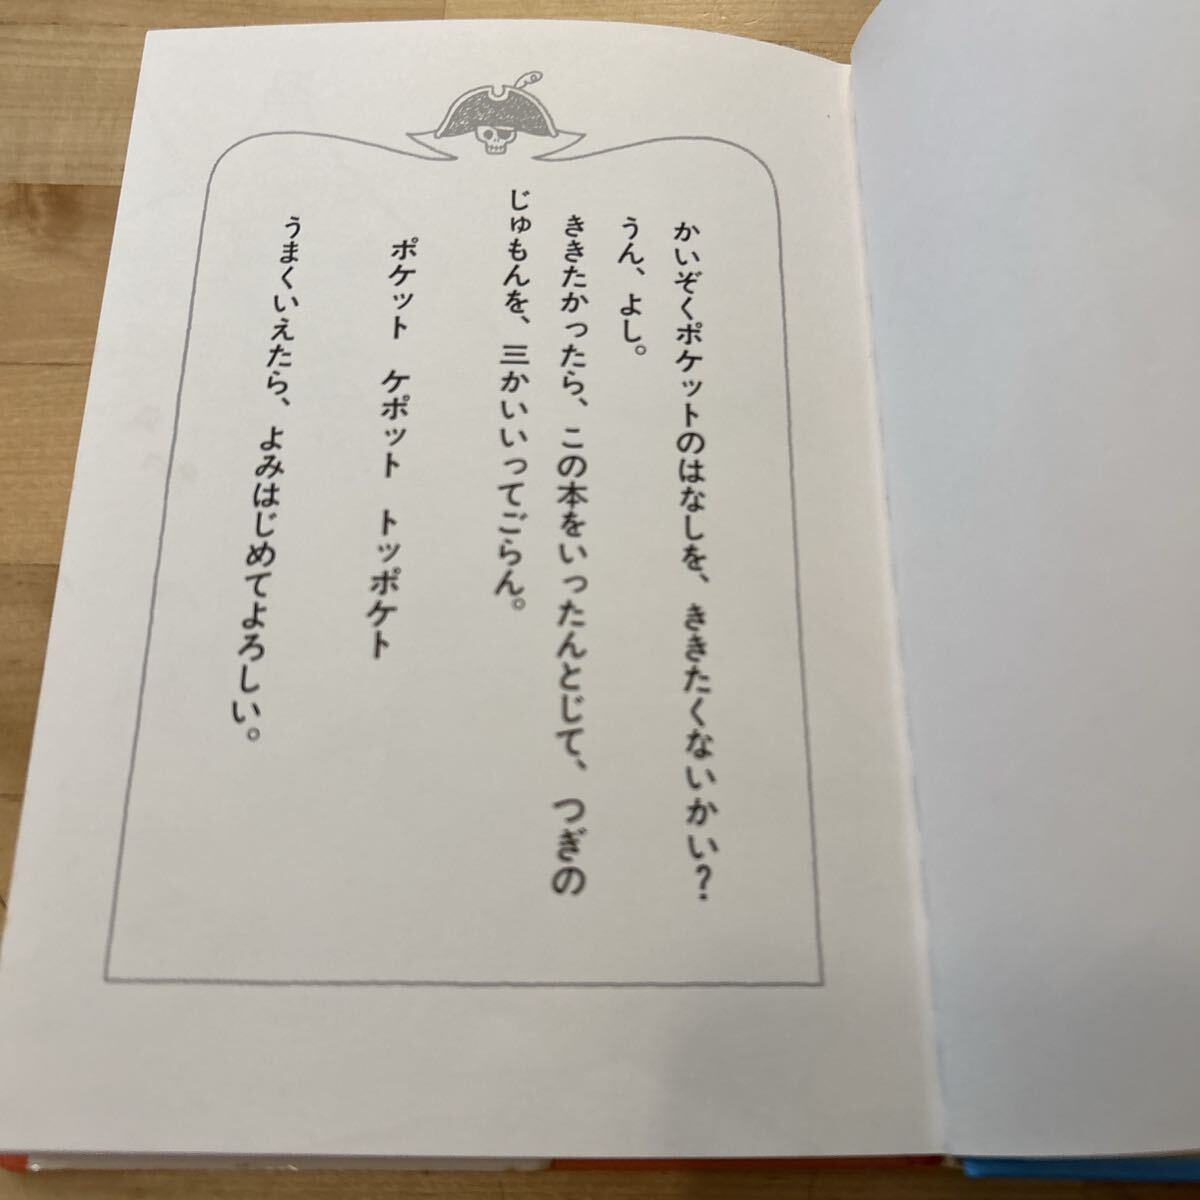 かいぞくポケットのはなしを、ききたくないかい？
うん、よし。
ききたかったら、この本をいったんとじて、つぎの
じゅもんを、三かいいってごらん。
ポケット　ケポット　トッポケト
うまくいえたら、よみはじめてよろしい。